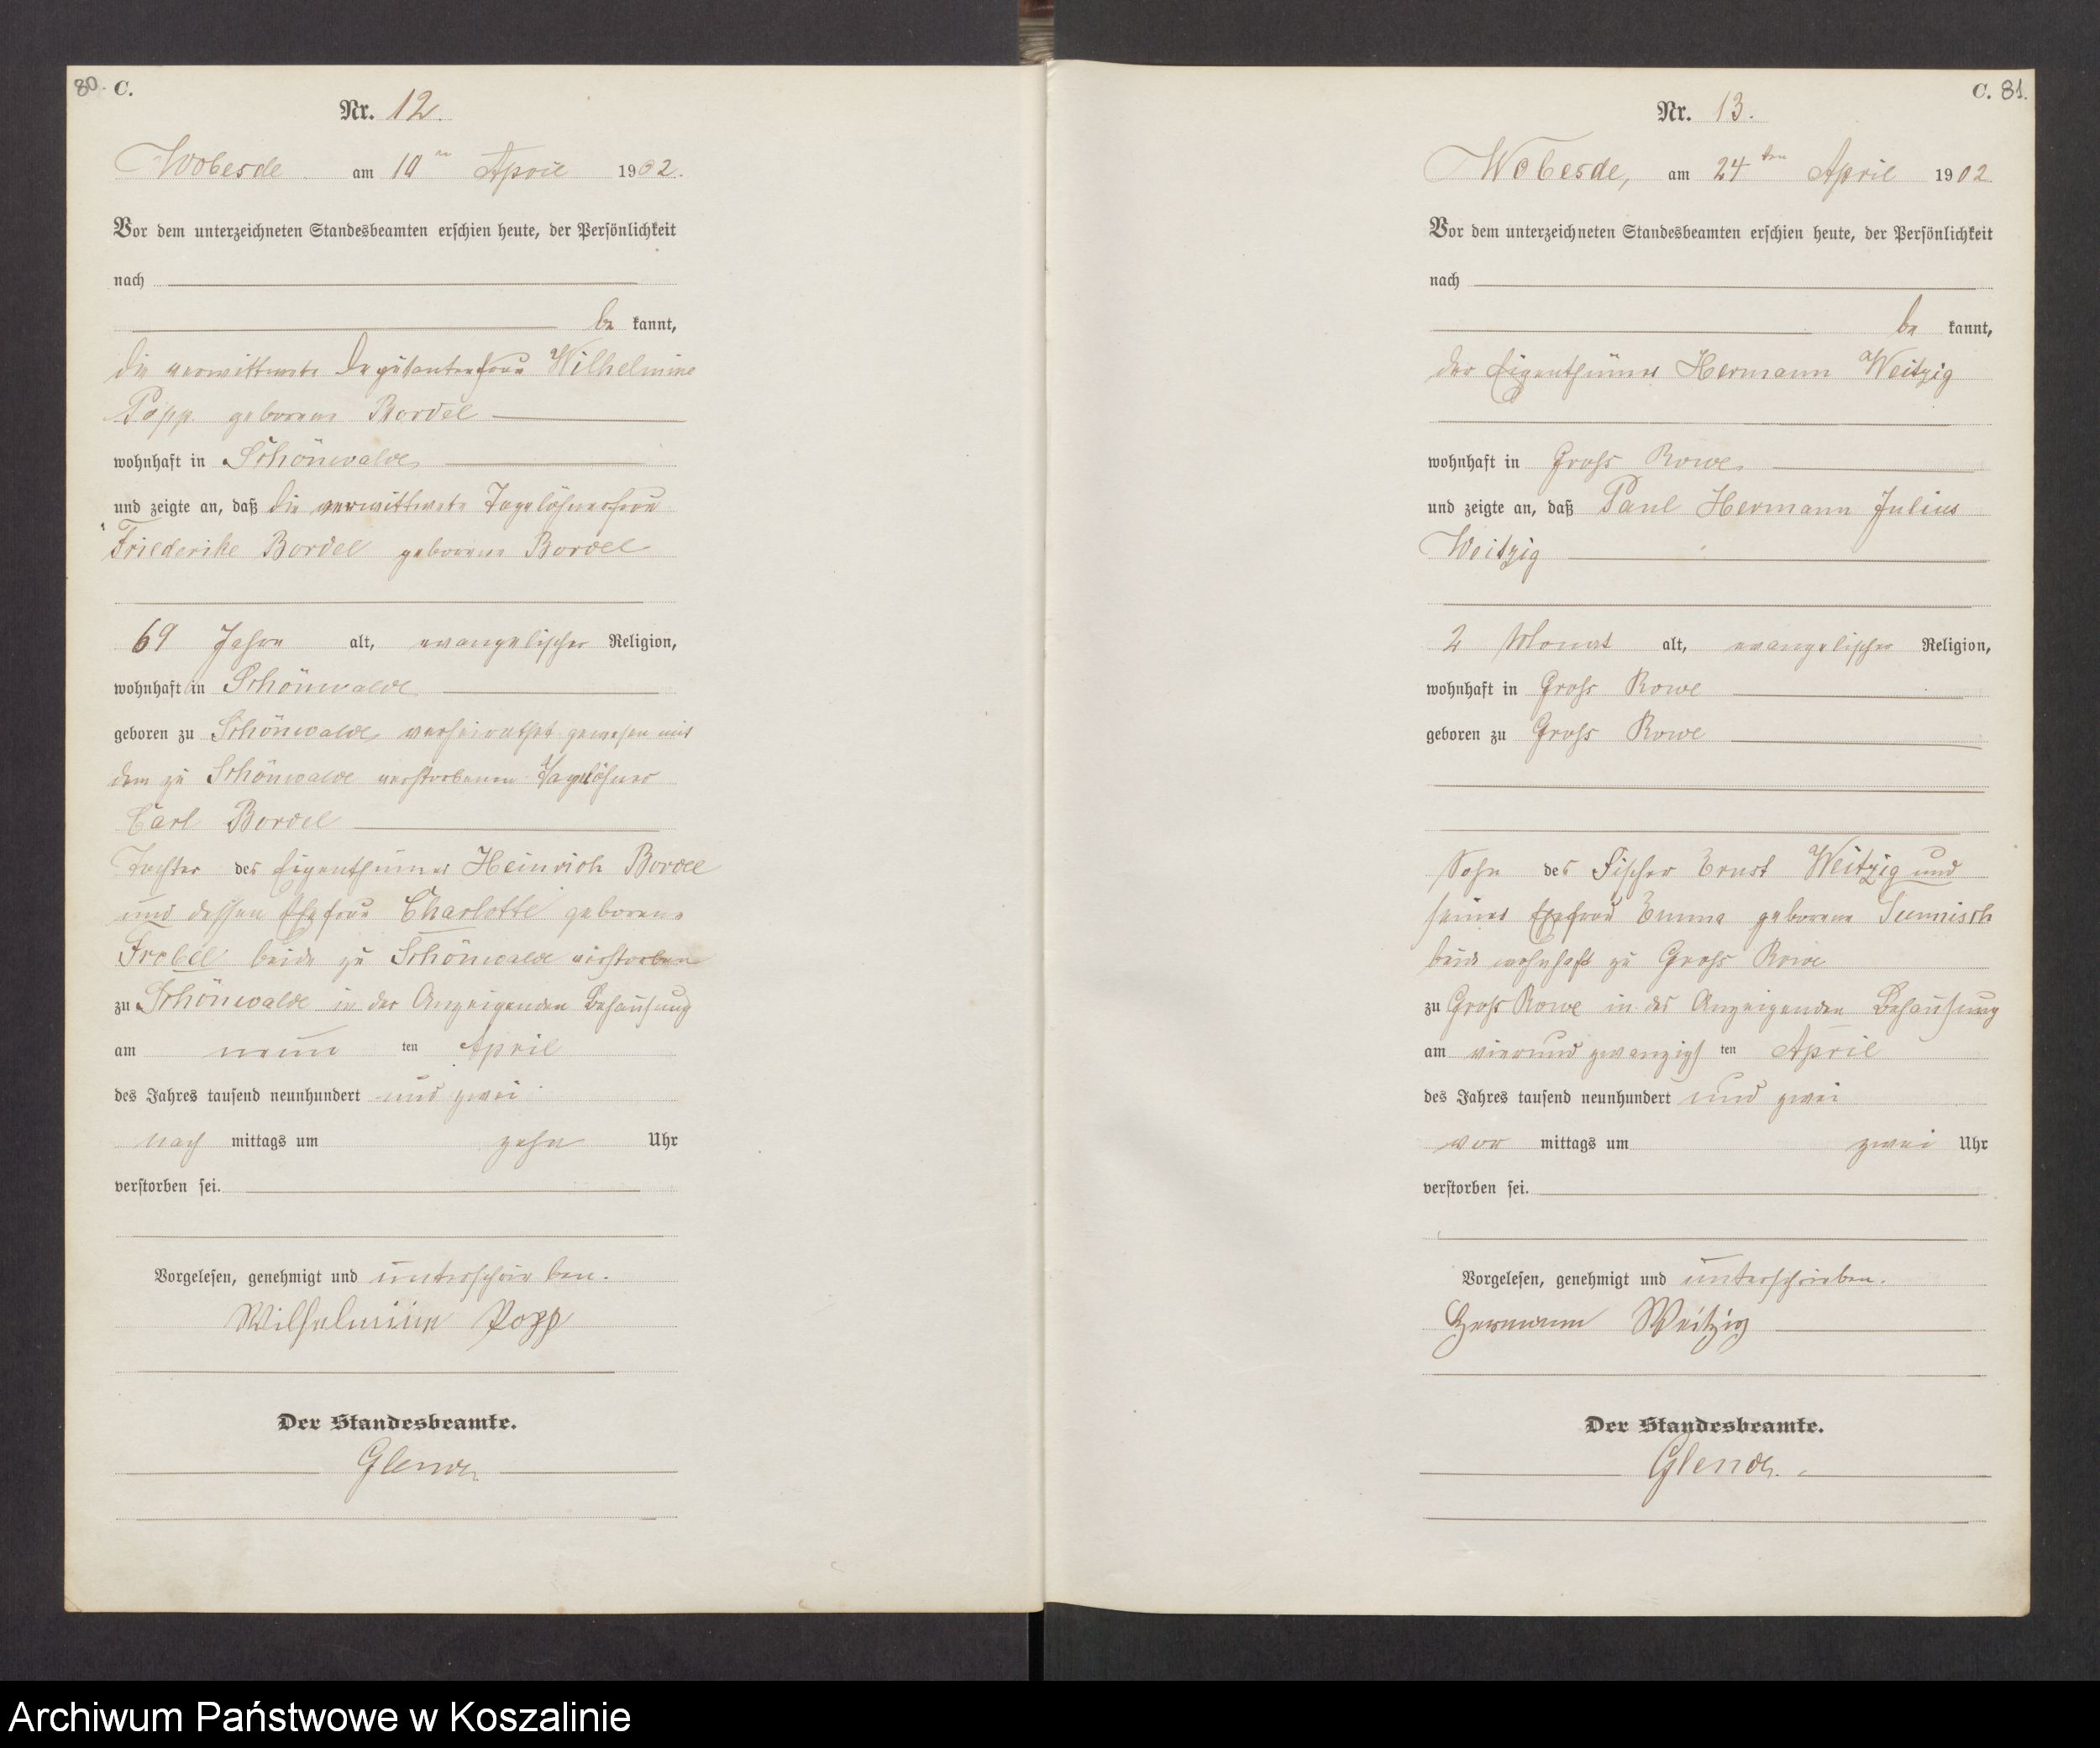 80. C.
Nr. 12.
Wobesde am 10ten April 1902.
Vor dem unterzeichneten Standesbeamten erschien heute, der Persönlichkeit
nach
be kannt,
die verwittwete Deputantenfrau Wilhelmine
Papp geborene Bordel
wohnhaft in Schönwalde
und zeigte an, daß die verwittwete Tagelöhnerfrau
Friederike Bordel geborene Bordel
69 Jahre alt, evangelischer Religion,
wohnhaft in Schönwalde
geboren zu Schönwalde, verheirathet gewesen mit
dem zu Schönwalde verstorbenen Tagelöhner
Carl Bordel
Tochter des Eigenthümer Heinrich Bordel
und dessen Ehefrau Charlotte geborene
Frobel beide zu Schönwalde verstorben
zu Schönwalde in der Anzeigenden Behausung
am neun ten April
des Jahres tausend neunhundert und zwei
nach mittags um zehn Uhr
verstorben sei.
Vorgelesen, genehmigt und unterschrieben.
Wilhelmine Popp
Der Standesbeamte.
C. 81.
Nr. 13.
Wobesde, am 24ten April 1902
Vor dem unterzeichneten Standesbeamten erschien heute, der Persönlichkeit
nach
be kannt,
der Eigenthümer Hermann Weitzig
wohnhaft in Gross Rowe
und zeigte an, daß Paul Hermann Julius
Weitzig
2 Monat alt, evangelischer Religion,
wohnhaft in Gross Rowe
geboren zu Gross Rowe
Sohn des Fischer Ernst Weitzig und
seiner Ehefrau Emma geborene
beide wohnhaft zu Gross Rowe
zu Gross Rowe in des Anzeigenden Behausung
am vierund zwanzigs ten April
des Jahres tausend neunhundert und zwei
vor mittags um zwei Uhr
verstorben sei.
Vorgelesen, genehmigt und unterschrieben.
Hermann Weitzig
Der Standesbeamte.
Archiwum Państwowe w Koszalinie